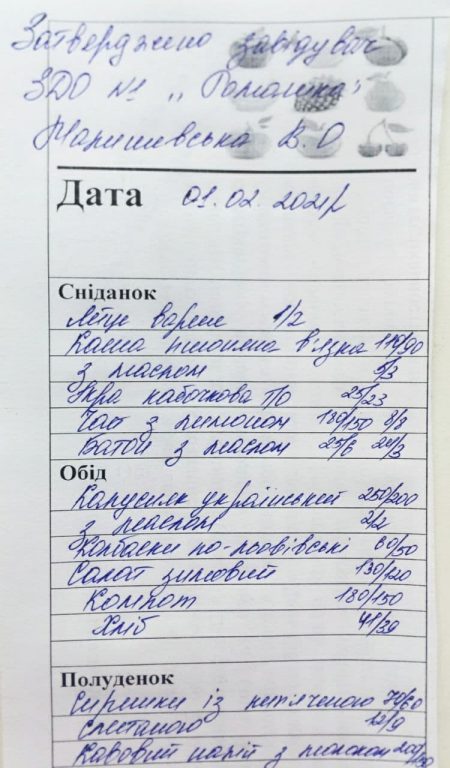 Затверджено завідувач
ЗДО №1 „Ромашка"
В.О
Дата 01.02.2021р
Сніданок
Яйце варене 1/2
Каша пшоняна в'язка 110/90
з маслом 5/3
Ікра кабачкова п/о 25/23
Чай з лимоном 180/150 8/8
Батон з маслом 25/6 20/3
Обід
Капусняк український 250/200
з маслом 2/2
Ковбаски по-львівські 60/50
Салат зимовий 130/120
Компот 180/150
Хліб 41/39
Полуденок
Сирники із 70/60
Сметаною 12/9
Кавовий напій з молоком